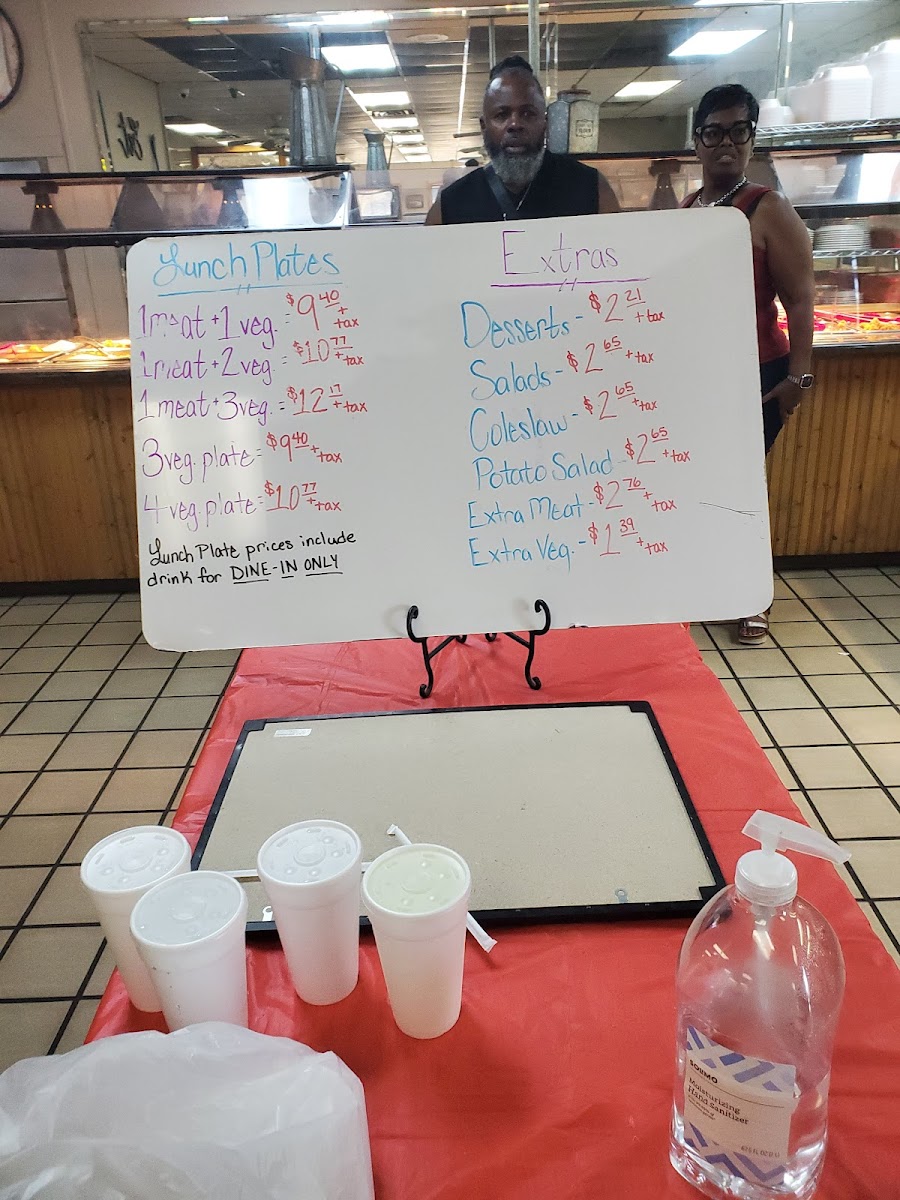 Lunch Plates
1 meat + 1 veg. = $9.40 + tax
1 meat + 2 veg. = $10.77 + tax
1 meat + 3 veg. = $12.17 + tax
3 veg. plate = $9.40 + tax
4 veg. plate = $10.77 + tax
Lunch Plate prices include
drink for DINE-IN ONLY
Extras
Desserts - $2.21 + tax
Salads - $2.65 + tax
Coleslaw - $2.65 + tax
Potato Salad - $2.65 + tax
Extra Meat - $2.76 + tax
Extra Veg. - $1.39 + tax
SOLIMO
Moisturizing
Hand Sanitizer